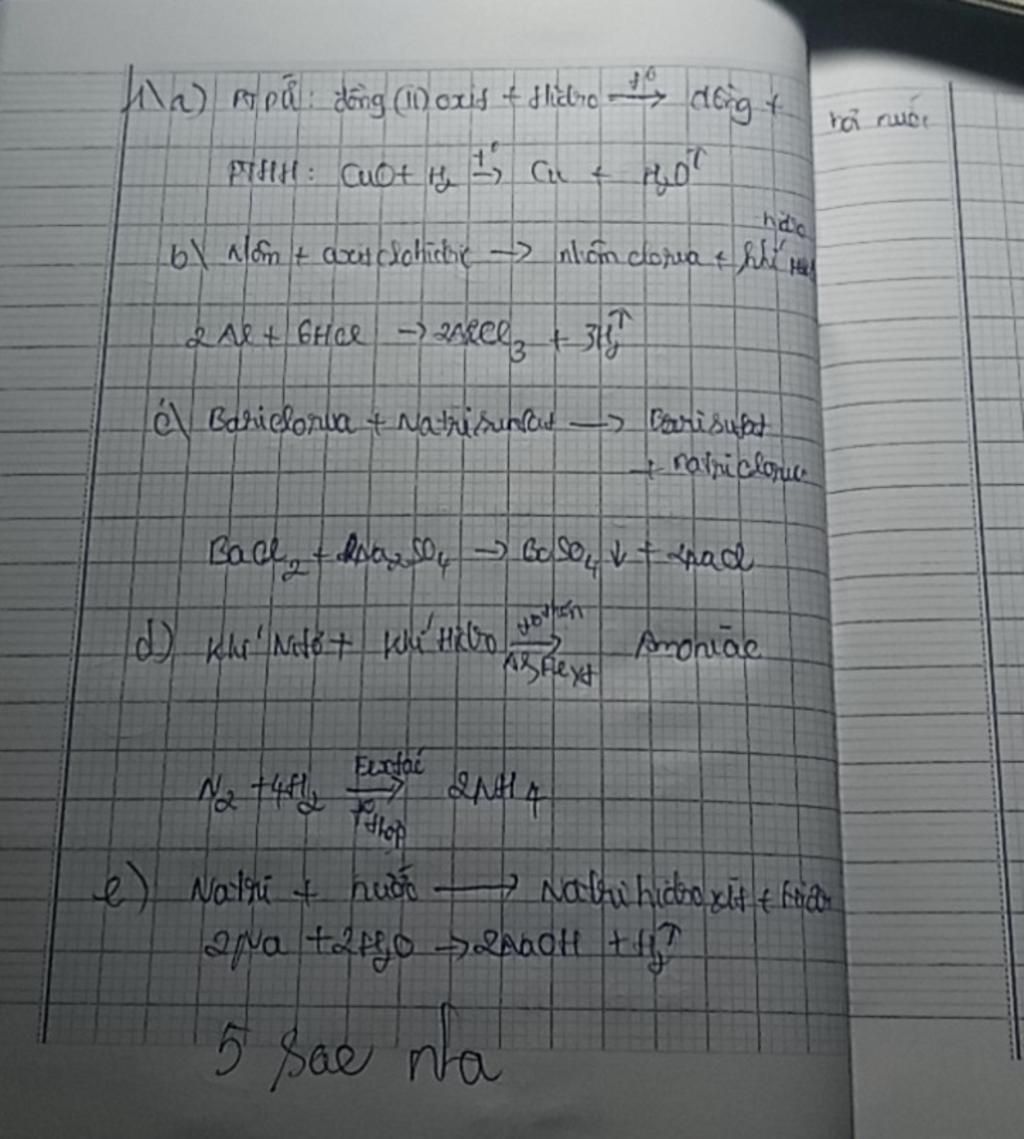 1\a) PTPƯ: đồng (II) oxit + Hiđro t° → đồng + hơi nước
PTHH: CuO + H₂ t° → Cu + H₂O↑
b\ Nhôm + axit clohiđric → nhôm clorua + khí hiđro
2Al + 6HCl → 2AlCl₃ + 3H₂↑
c\ Bariclorua + Natrisunfat → Barisufat
+ natriclorua
BaCl₂ + Na₂SO₄ → BaSO₄↓ + 2NaCl
d) Khí Nitơ + Khí Hiđro → Amoniăc
N₂ + 4H₂ → 2NH₄
t° thấp
e) Natri + nước → Natri hiđroxit + Hiđro
2Na + 2H₂O → 2NaOH + H₂↑
5 sao nha